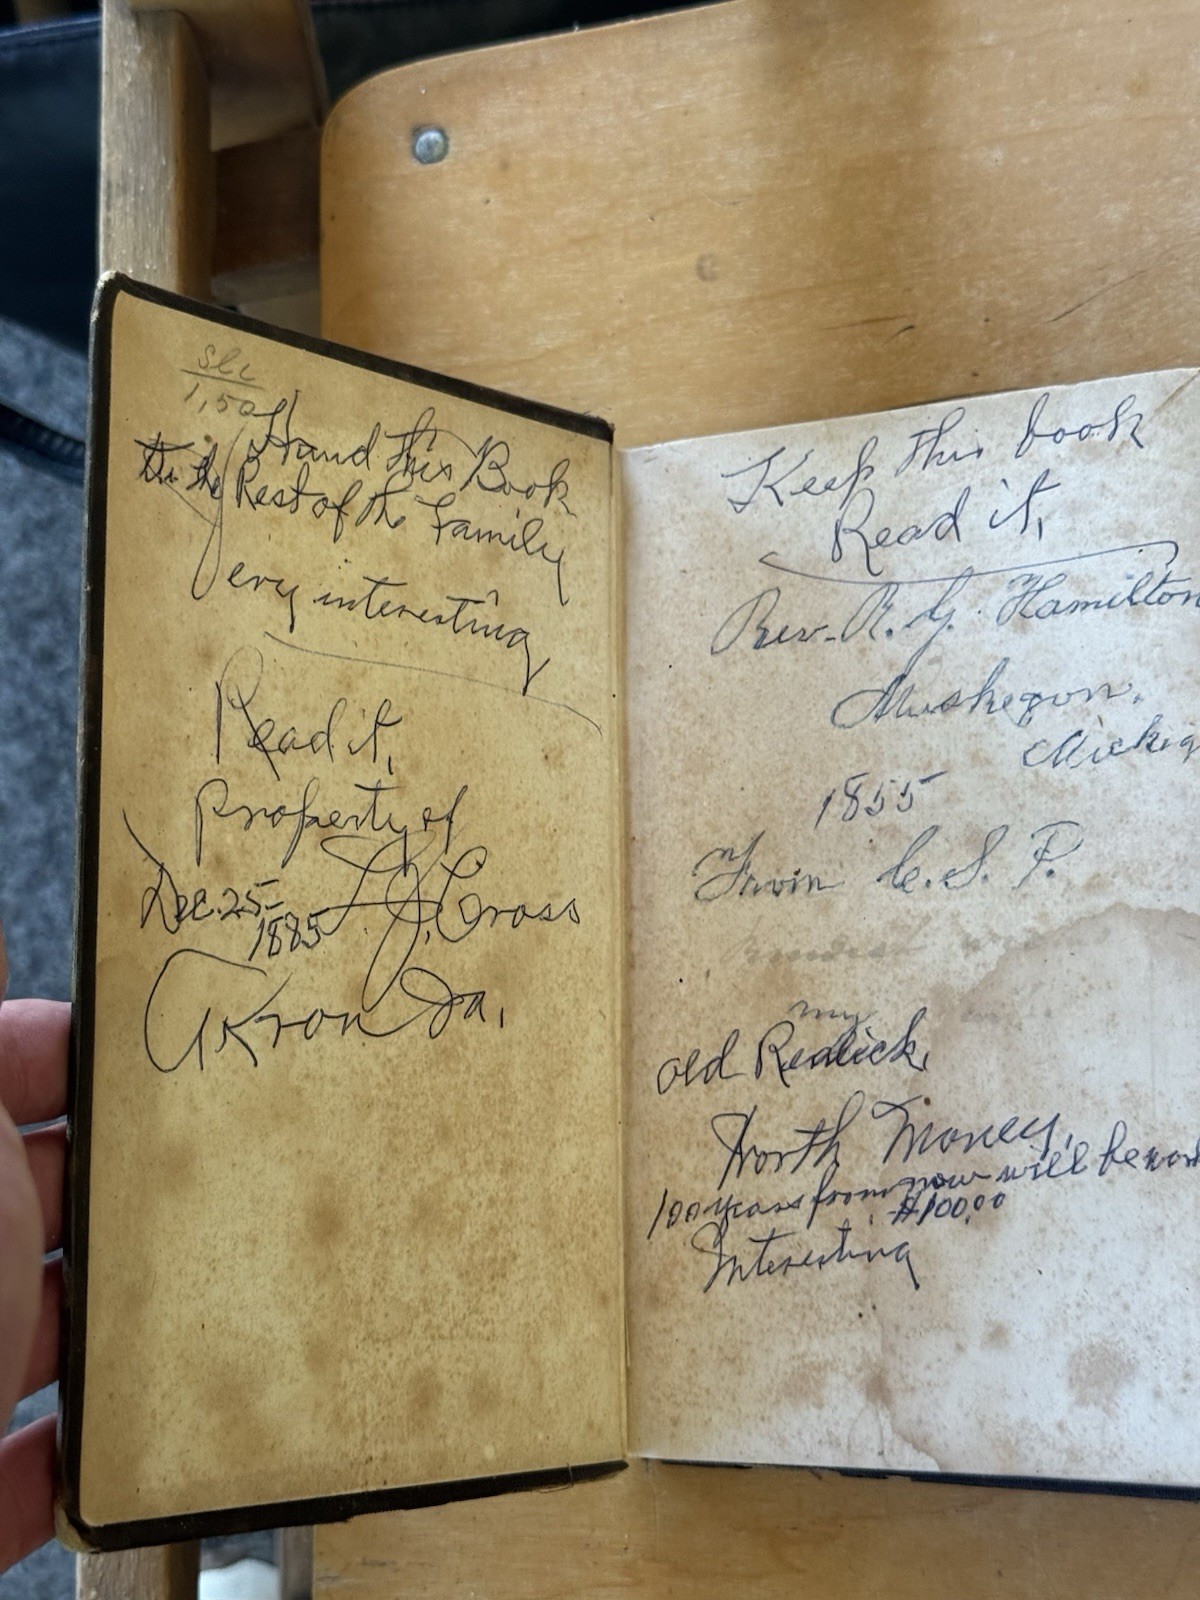 1,50
Hand This Book
to the Rest of the Family
Very interesting
Read it,
Property of
Dec. 25-
1885 L. J. Cross
Akron Ia.
Keep this book
Read it,
Rev. R. G. Hamilton
Muskegon,
Michig
1855
Irvin C. S. P.
my
old Relick,
Worth Money,
100 years from now will be wor
$100.00
Interesting